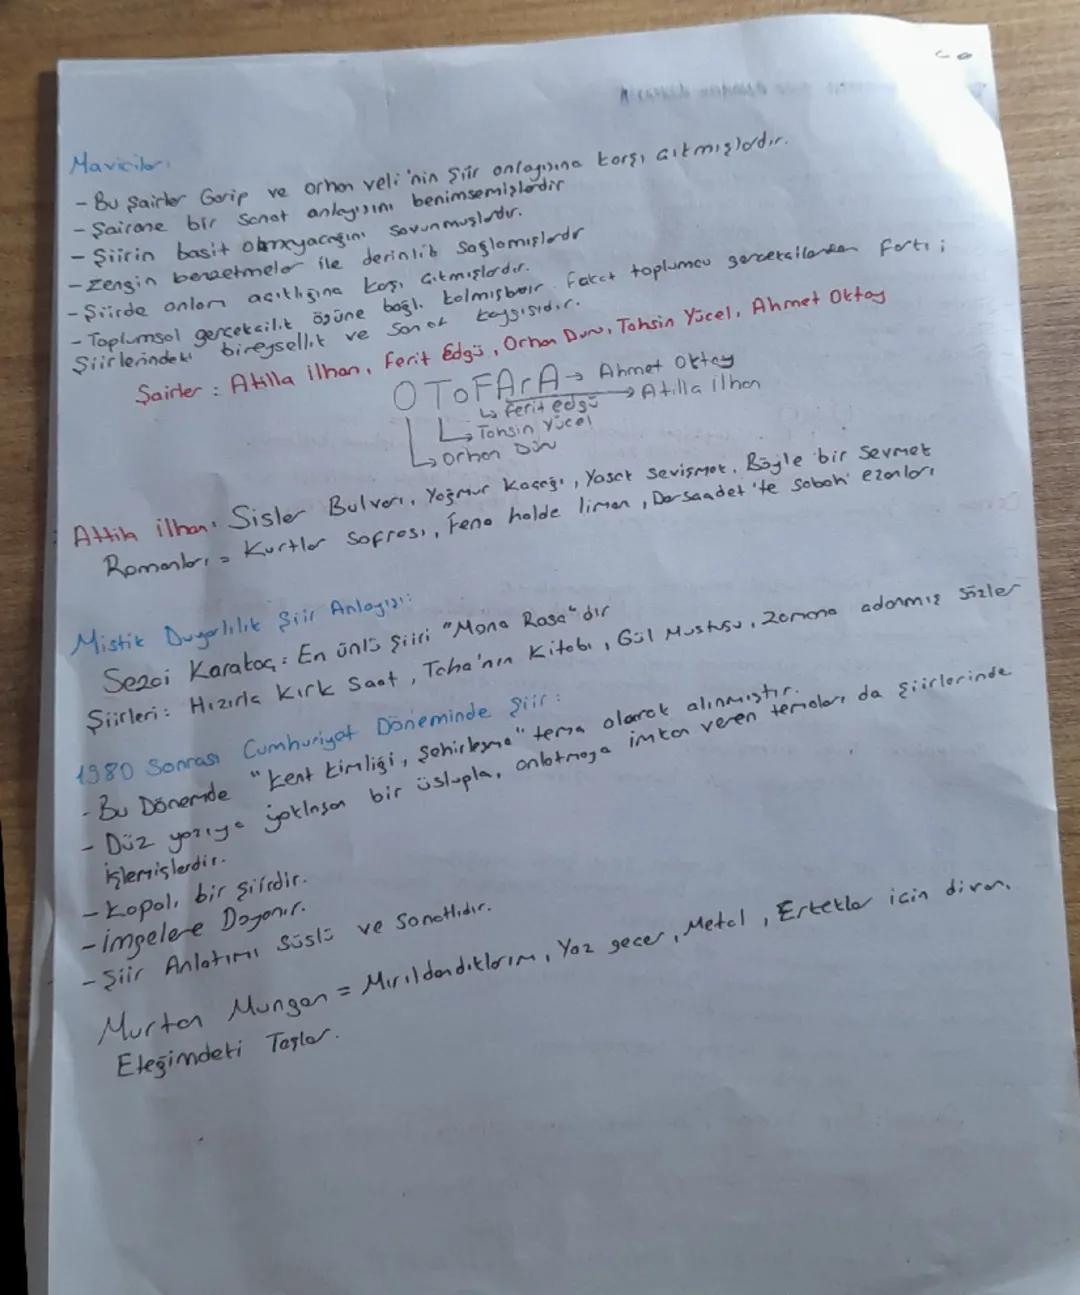 Maviciler:
- Bu Şairler Garip ve orhan veli'nin şiir anlayışına karşı çıkmışlardır.
- Şairane bir sanat anlayışını benimsemişlerdir
- Şiirin basit olamayacağını savunmuşlardır.
- Zengin benzetmeler ile derinlik sağlamışlardır
- Şiirde anlam açıklığına karşı çıkmışlardır.
- Toplumsal gerçekcilik özüne bağlı kalmışlar fakat toplumcu gerçekcilerden farkı;
Şiirlerindeki bireysellik ve sanat kaygısıdır.
Şairler: Atilla ilhan, Ferit Edgü, Orhan Duru, Tahsin Yücel, Ahmet Oktay
OToFArA → Ahmet Oktay
→ Atilla ilhan
↳ Ferit edgü
↳ Tahsin Yücel
↳ Orhan Duru
Attila ilhan: Sisler Bulvarı, Yağmur Kaçağı, Yasak sevişmek, Böyle bir sevmek
Romanları = Kurtlar sofrası, Fena halde liman, Dersaadet'te sabah ezanları
Mistik Duyarlılık Şiir Anlayışı:
Sezai Karakoç: En ünlü şiiri "Mona Rosa"dır
Şiirleri: Hızırla Kırk Saat, Taha'nın Kitabı, Gül Mustusu, Zamana adanmış sözler
1980 Sonrası Cumhuriyet Döneminde Şiir:
- Bu Dönemde "kent kimliği, şehirleşme" tema olarak alınmıştır.
- Düz yazıya yaklaşan bir üslupla, anlatmaya imkan veren temaları da şiirlerinde
işlemişlerdir.
- Kapalı bir şiirdir.
- imgelere Dayanır.
- Şiir Anlatımı Süslü ve sanatlıdır.
Murtan Mungan = Mırıldandıklarım, Yaz geçer, Metal, Erkekler için divan,
Eteğimdeki Taşlar.